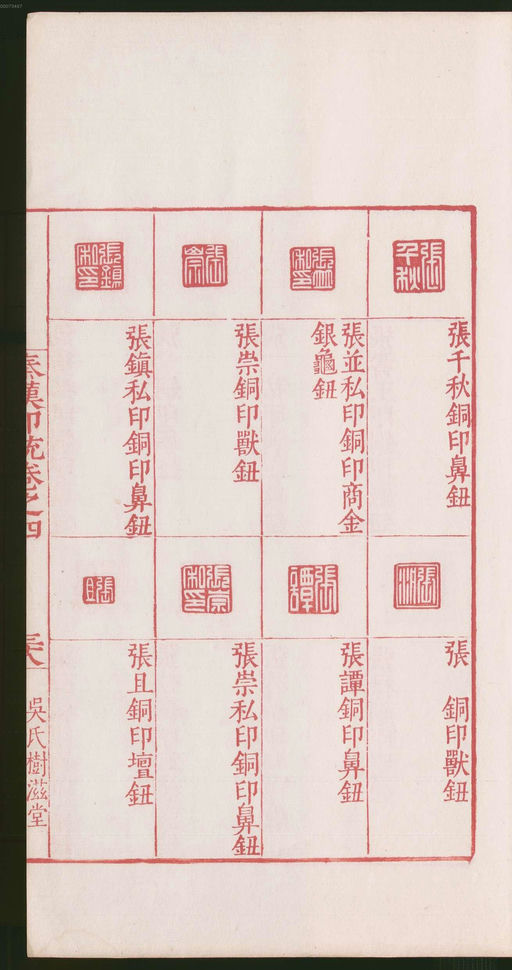 張千秋銅印鼻鈕
張並私印銅印商金
銀龜鈕
張崇銅印獸鈕
張鎮私印銅印鼻鈕
張 銅印獸鈕
張譚銅印鼻鈕
張崇私印銅印鼻鈕
張且銅印壇鈕
秦漢印統卷之四
吳氏樹滋堂
00073447